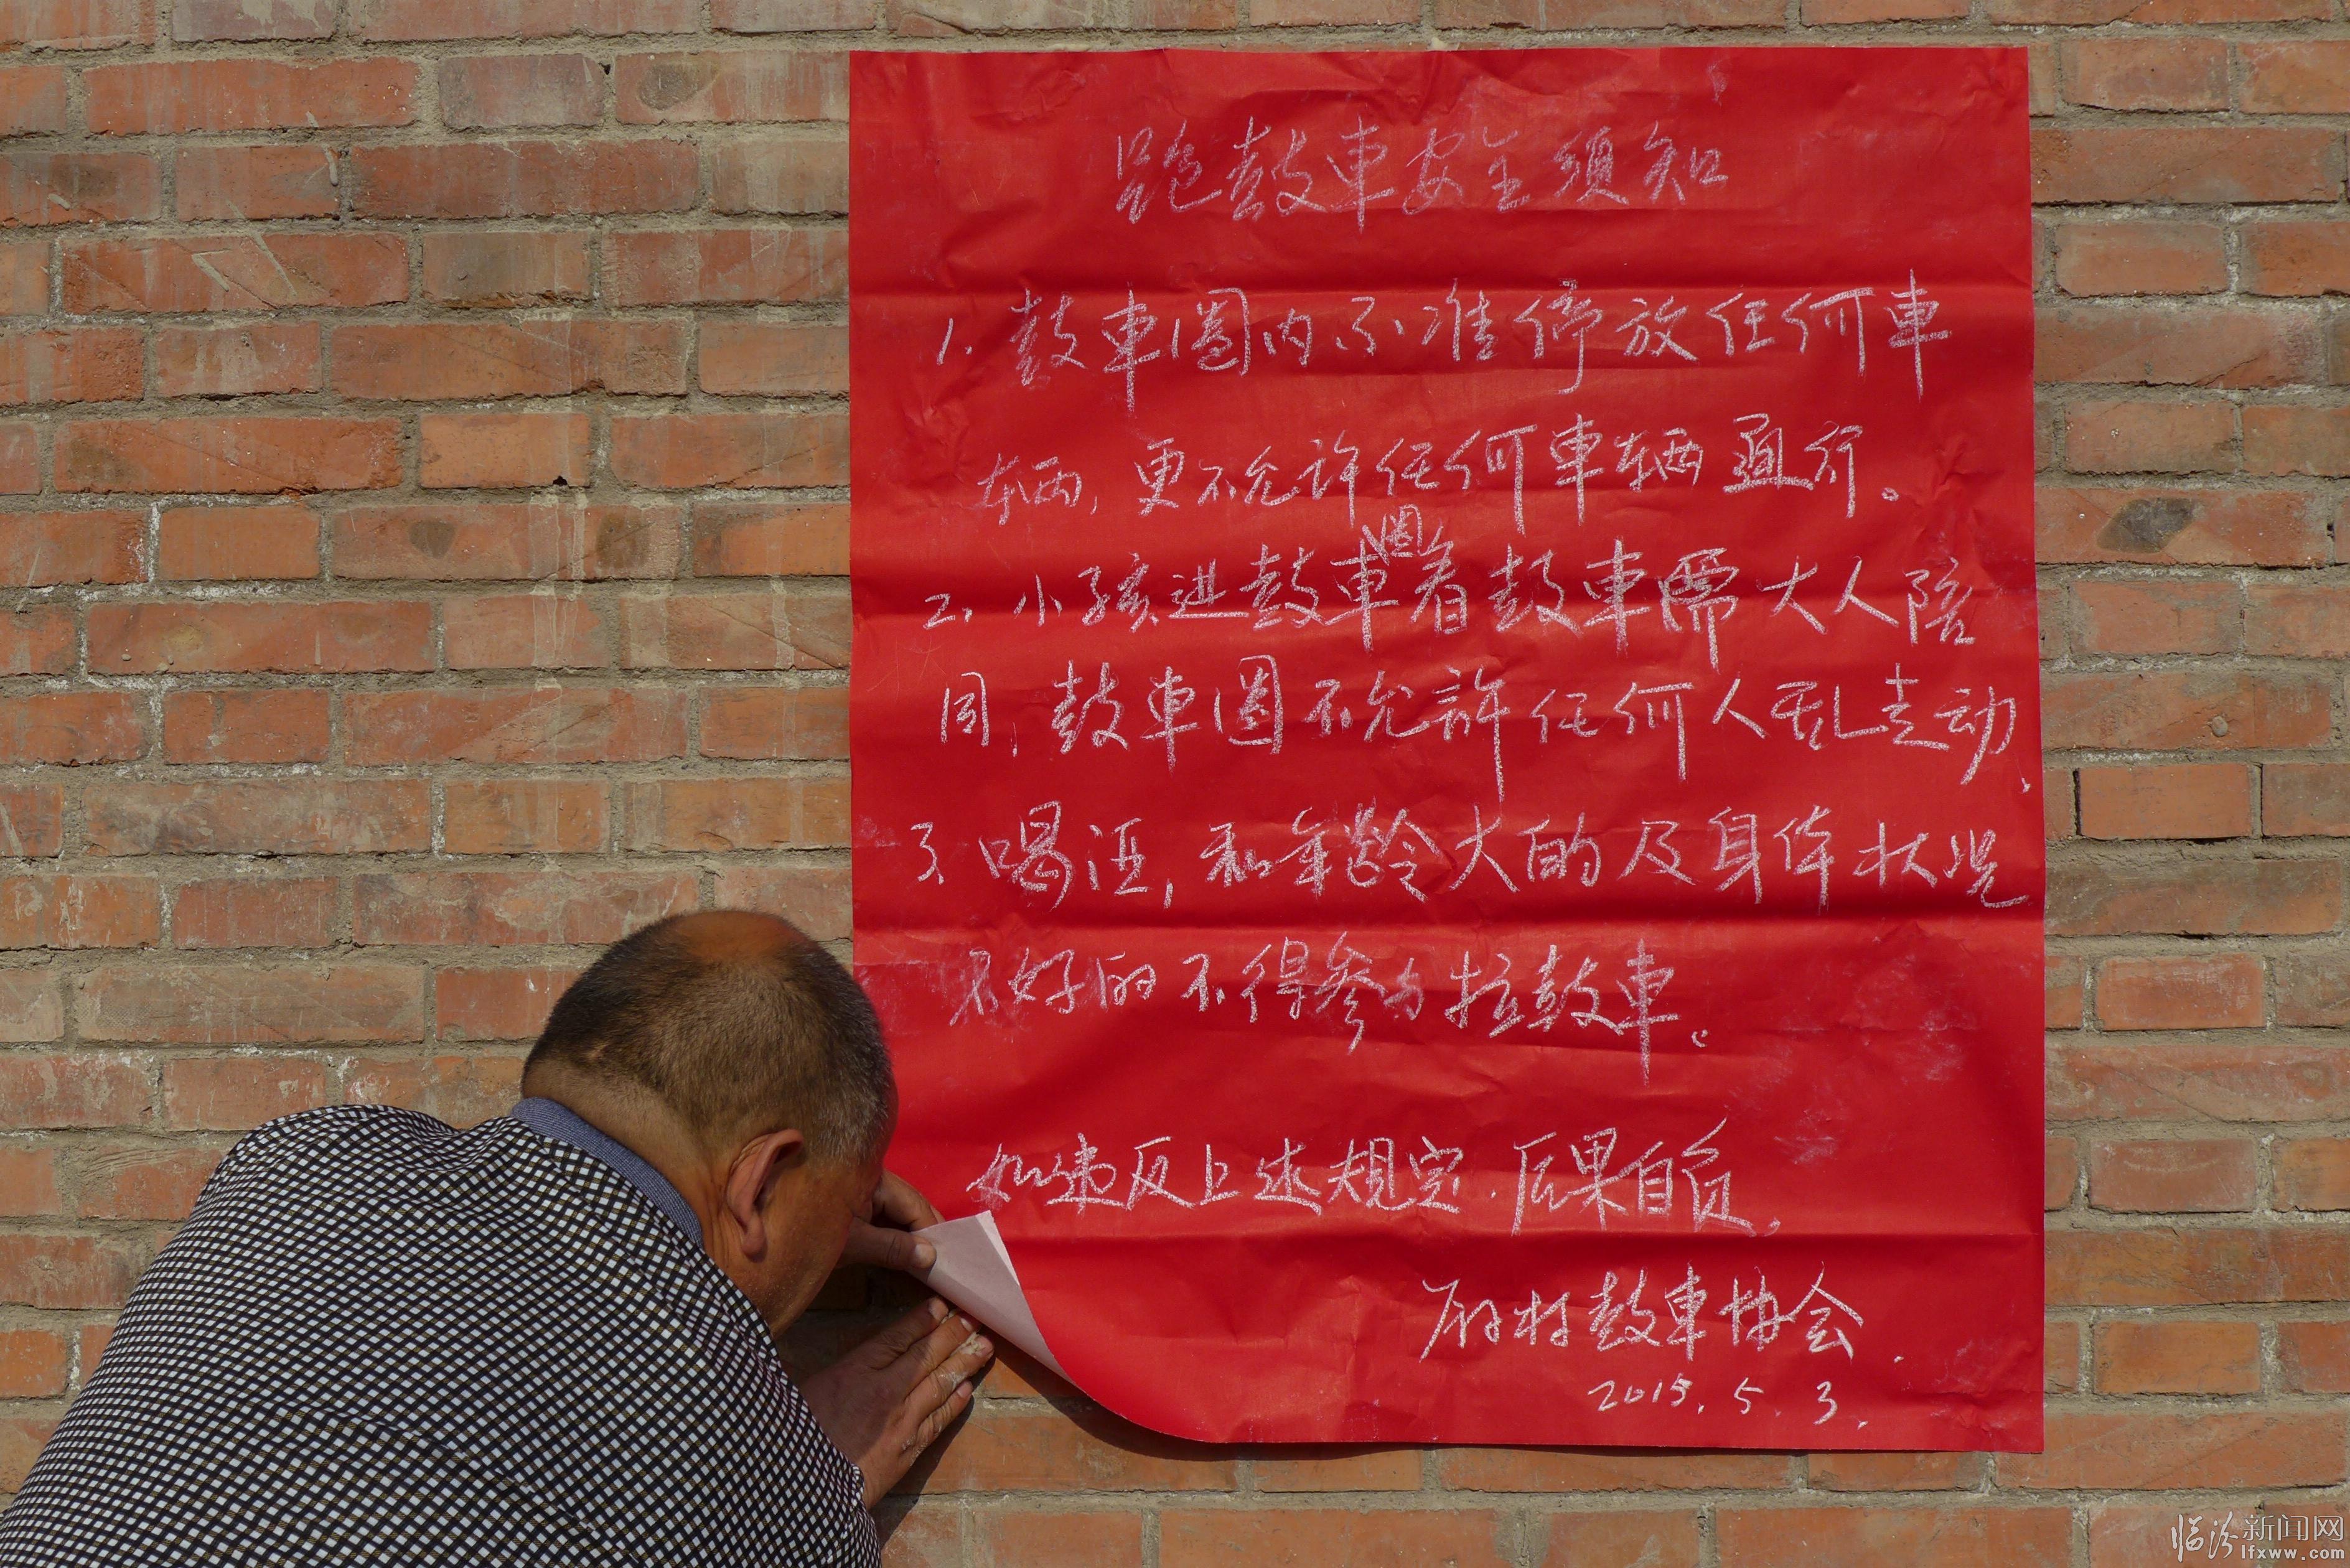 跑鼓車安全须知
1. 鼓車圈内不准停放任何車
车辆，更不允许任何車辆通行。
2. 小孩进鼓車圈看鼓車需大人陪
同，鼓車圈不允許任何人乱走动、
3. 喝酒，和年龄大的及身体状况
不好的不得参与拉鼓車。
如违反上述规定．后果自负，
府村鼓車协会．
2015. 5. 3.
临汾新闻网
lfxww.com